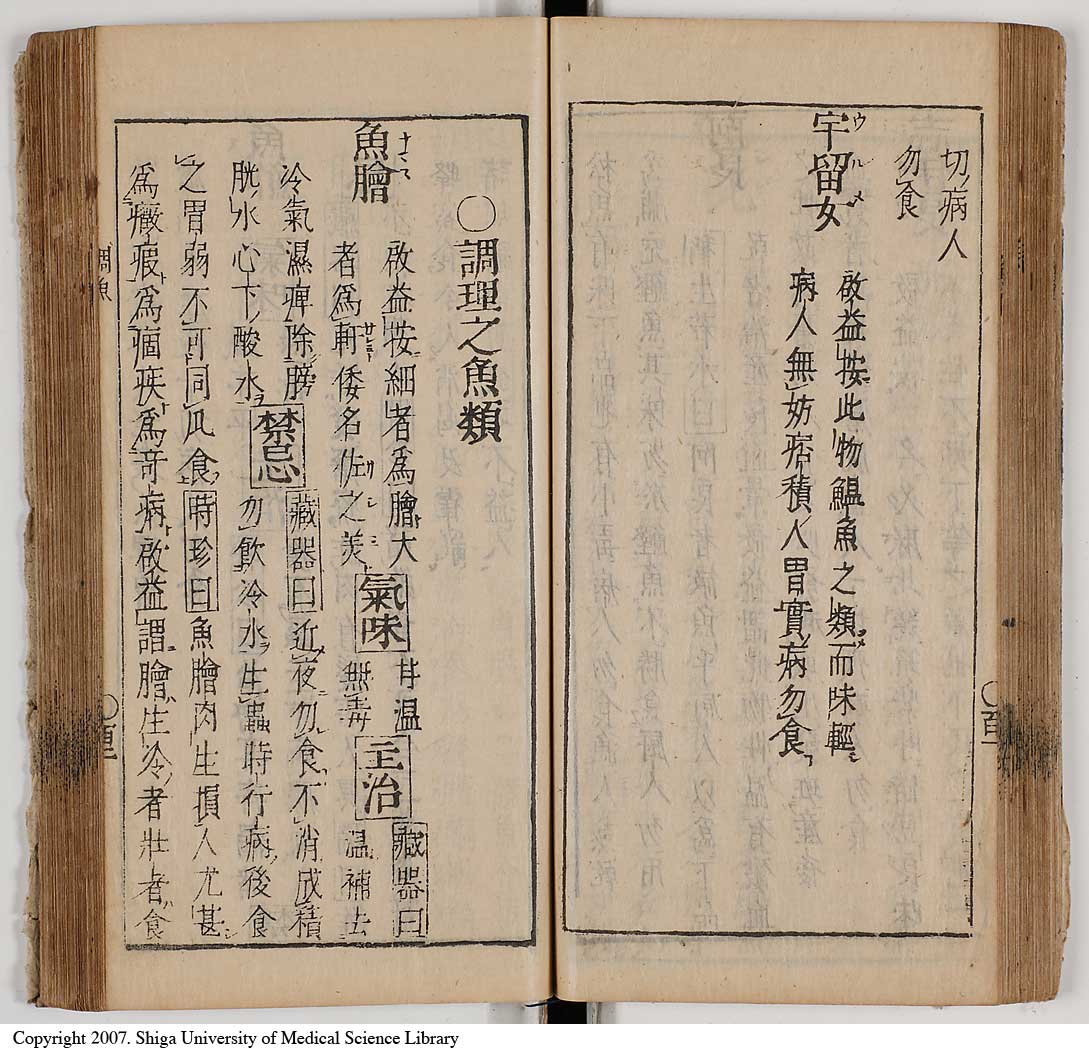 切病人
勿食
宇留女
啟益按此物鰮魚之類而味輕
病人無妨痞積人胃實病勿食
○調理之魚類
魚膾
啟益按細者爲膾大
者爲軒倭名佐之美
氣味
甘温
無毒
主治
藏器曰
温補去
冷氣濕痺除膀
胱水心下酸水
禁忌
藏器曰近夜勿食不消成積
勿飲冷水生蟲時行病後食
之胃弱不可同瓜食時珍曰魚膾肉生損人尤甚
爲癥瘕爲痼疾爲奇病啟益謂膾生冷者壯者食
調魚
Copyright 2007. Shiga University of Medical Science Library